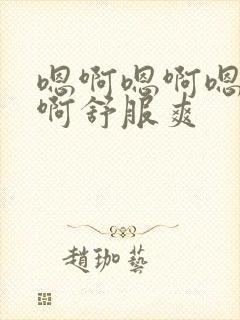 嗯啊嗯啊嗯
啊舒服爽
赵珈艺